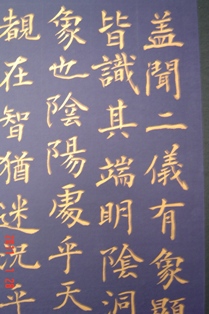 盖聞二儀有象顯
皆識其端明陰洞
象也陰陽處乎天
覩在智猶迷況乎